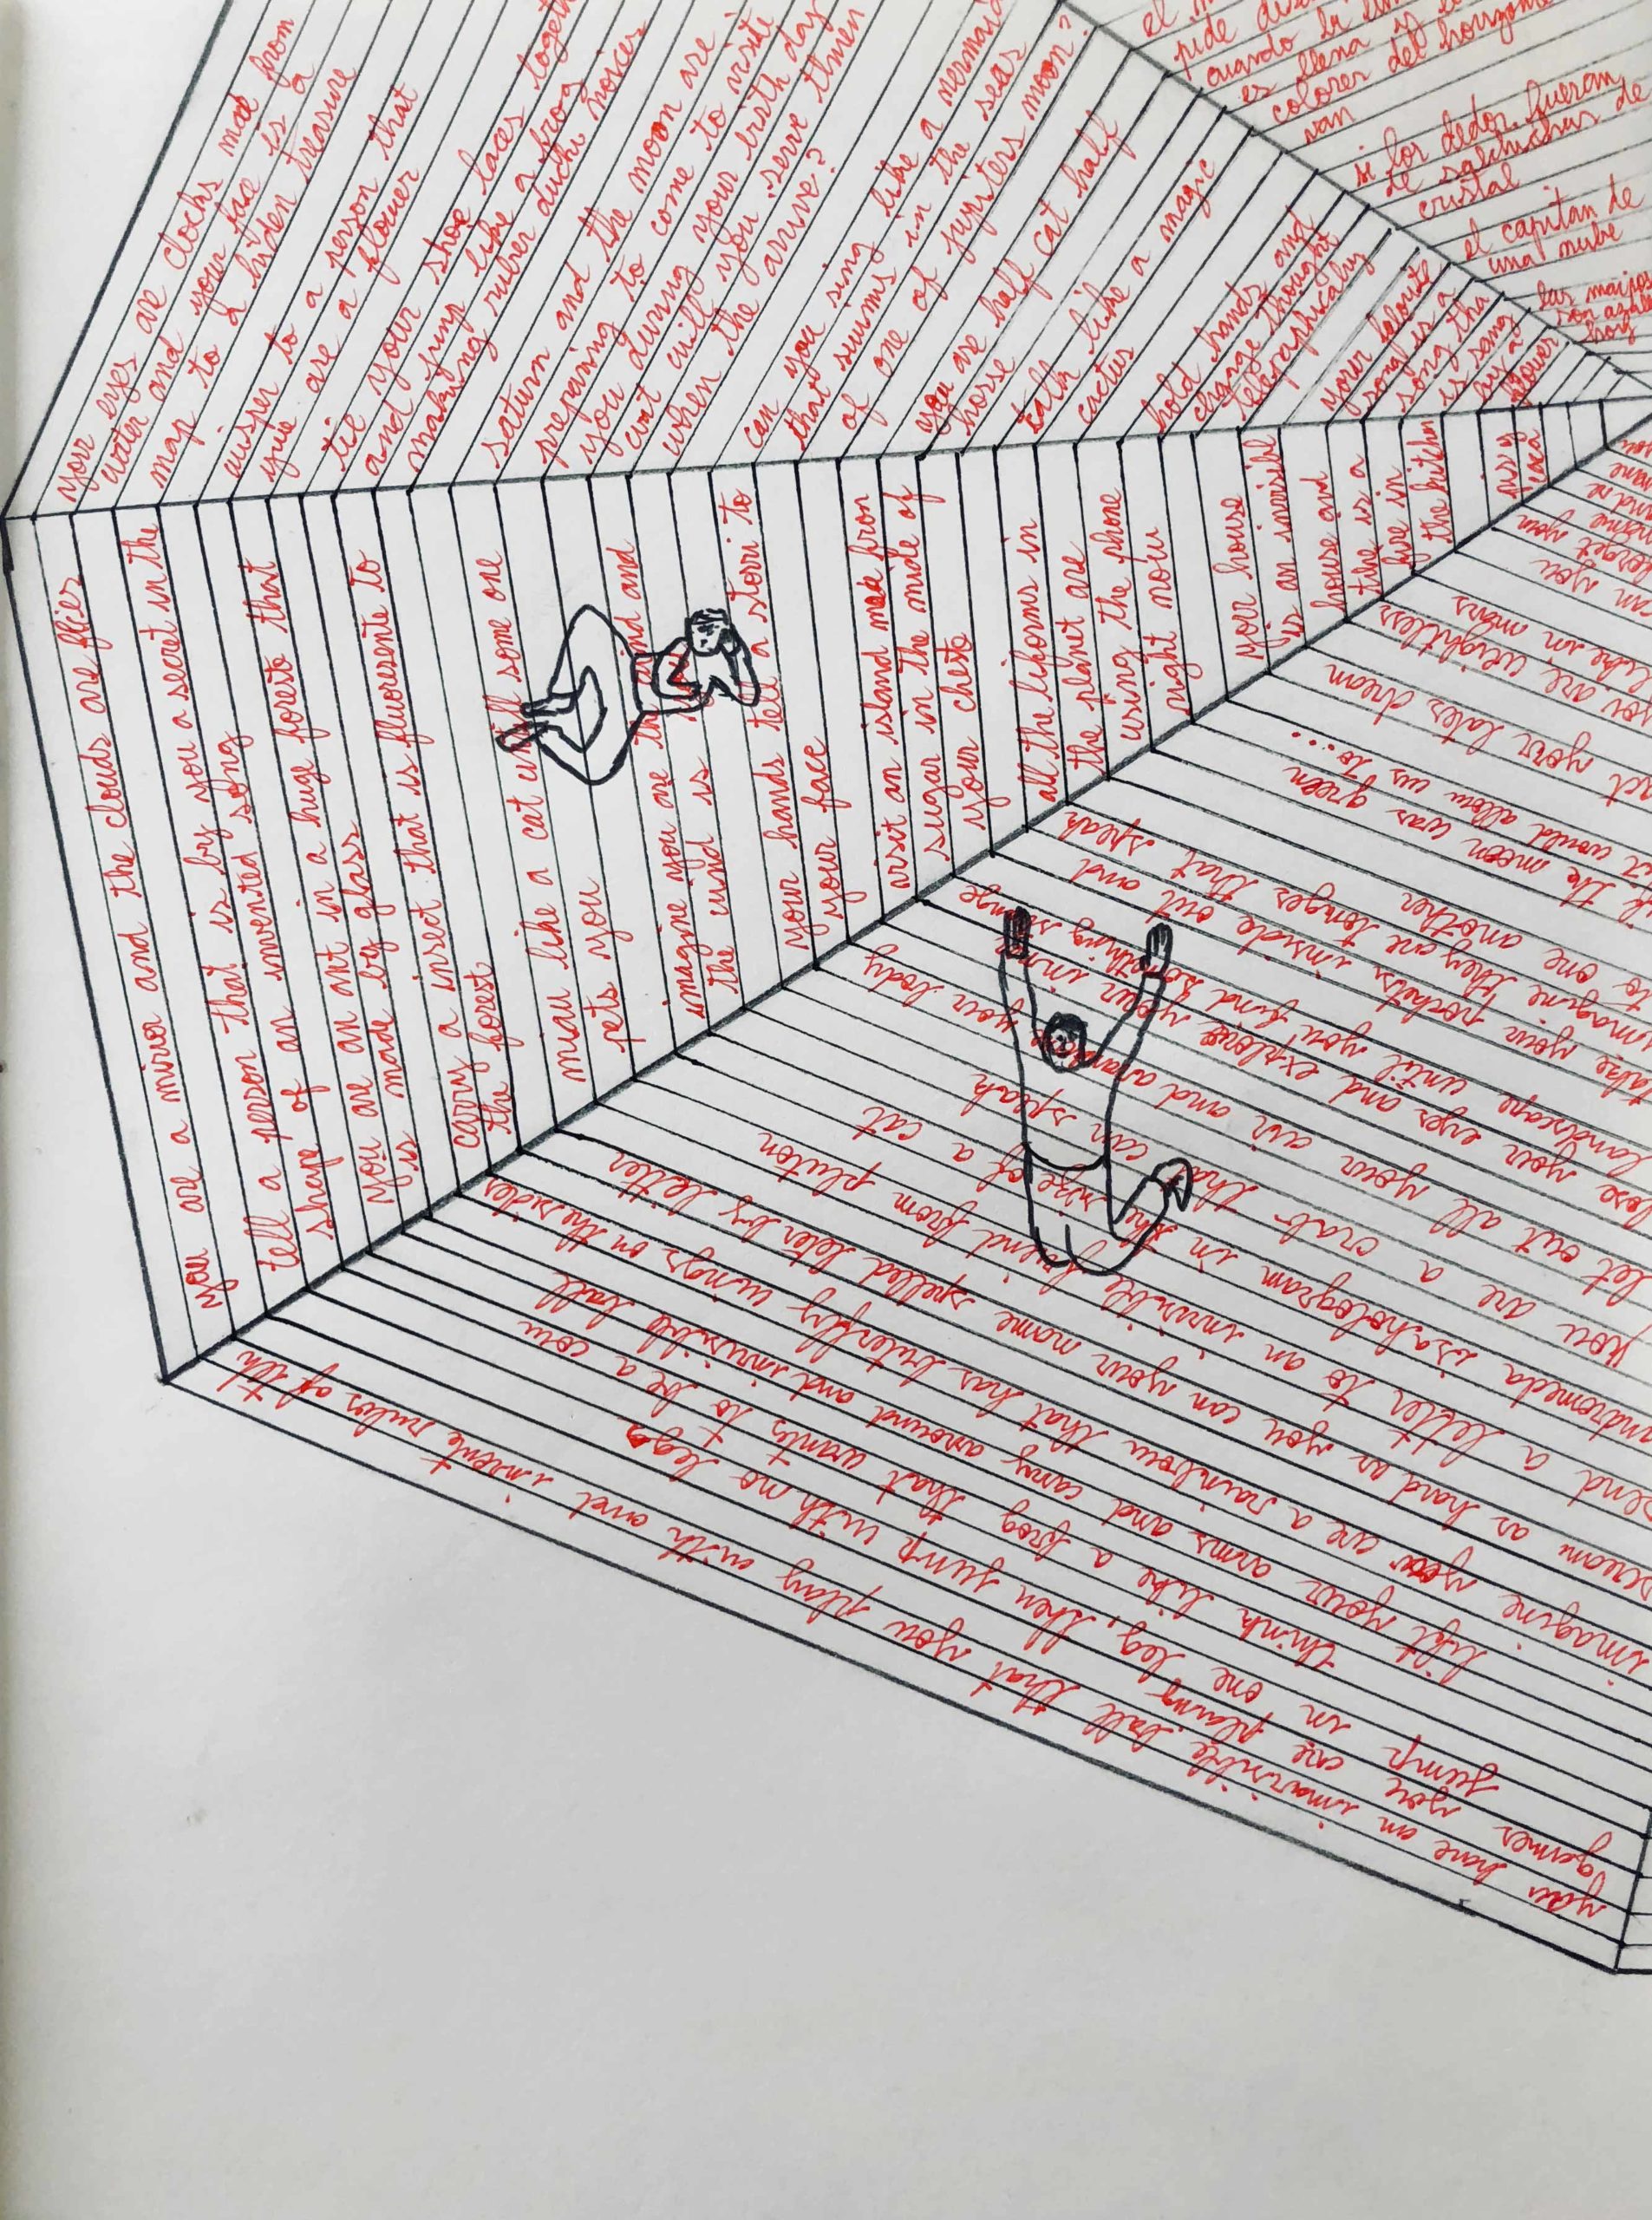 your eyes are clocks mad from
water and your face is a
map to a hiden treasure
wisper to a person that
your are a flower
tie your shoe laces togeth
and jump like a frog
making ruber ducke noices
saturn and the moon are
prepairing to come to visit
you durning your birth day
wat will you serve them
when the arrive?
can you sing like a mermaid
that swims in the seas
of one of jupiters moon?
you are half cat half
horse
talk like a magic
cactus
hold hands and
change thought
telegraphicaly
your faborite
song is a
song tha
is sang
by a
flower
el
pide
cuando la
es llena y
colores del horizonte
van
si los dedos fueran
de salchichas de
cristal
el capitan de
una nube
las maripos
son azules
hoy
you are a mirror and the clouds are flies
tell a person that is by you a secret in the
shape of an invented song
you are an ant in a huge foreste that
is made by glass
carry a insect that is fluoresente to
the forest
miau like a cat until some one
pets you
imagine you are the wind and
the wind is
your hands tell a storri to
your face
visit an island made fron
sugar in the midle of
your cheste
all the liforms in
the planet are
using the phone
right now
your house
is an invisible
house and
the is a
fire in
the kitchn
can you
forget you
you are weigtless
like in mars
act your lates dream
if the moon was green
it would allow us to....
imagine they are tonges that speak
to one another
take your pockets inside out and
close your eyes and explore your iner
landscape until you find something strange
let out all your air and your body
you are a crab that can speak
andromeda is a hologram in the size of a cat
send a letter to an invisible friend from pluton
scream as hard as you can your name spelled leter by letter
imagine you are a rainbow that has buterfly wings on the sides
lift your arms and carry around and invisible ball
think like a frog that wants to be a cow
jump in one leg, then jump with no legs
you have an invisible ball that you play with and invent rules of teh
games you are plaing